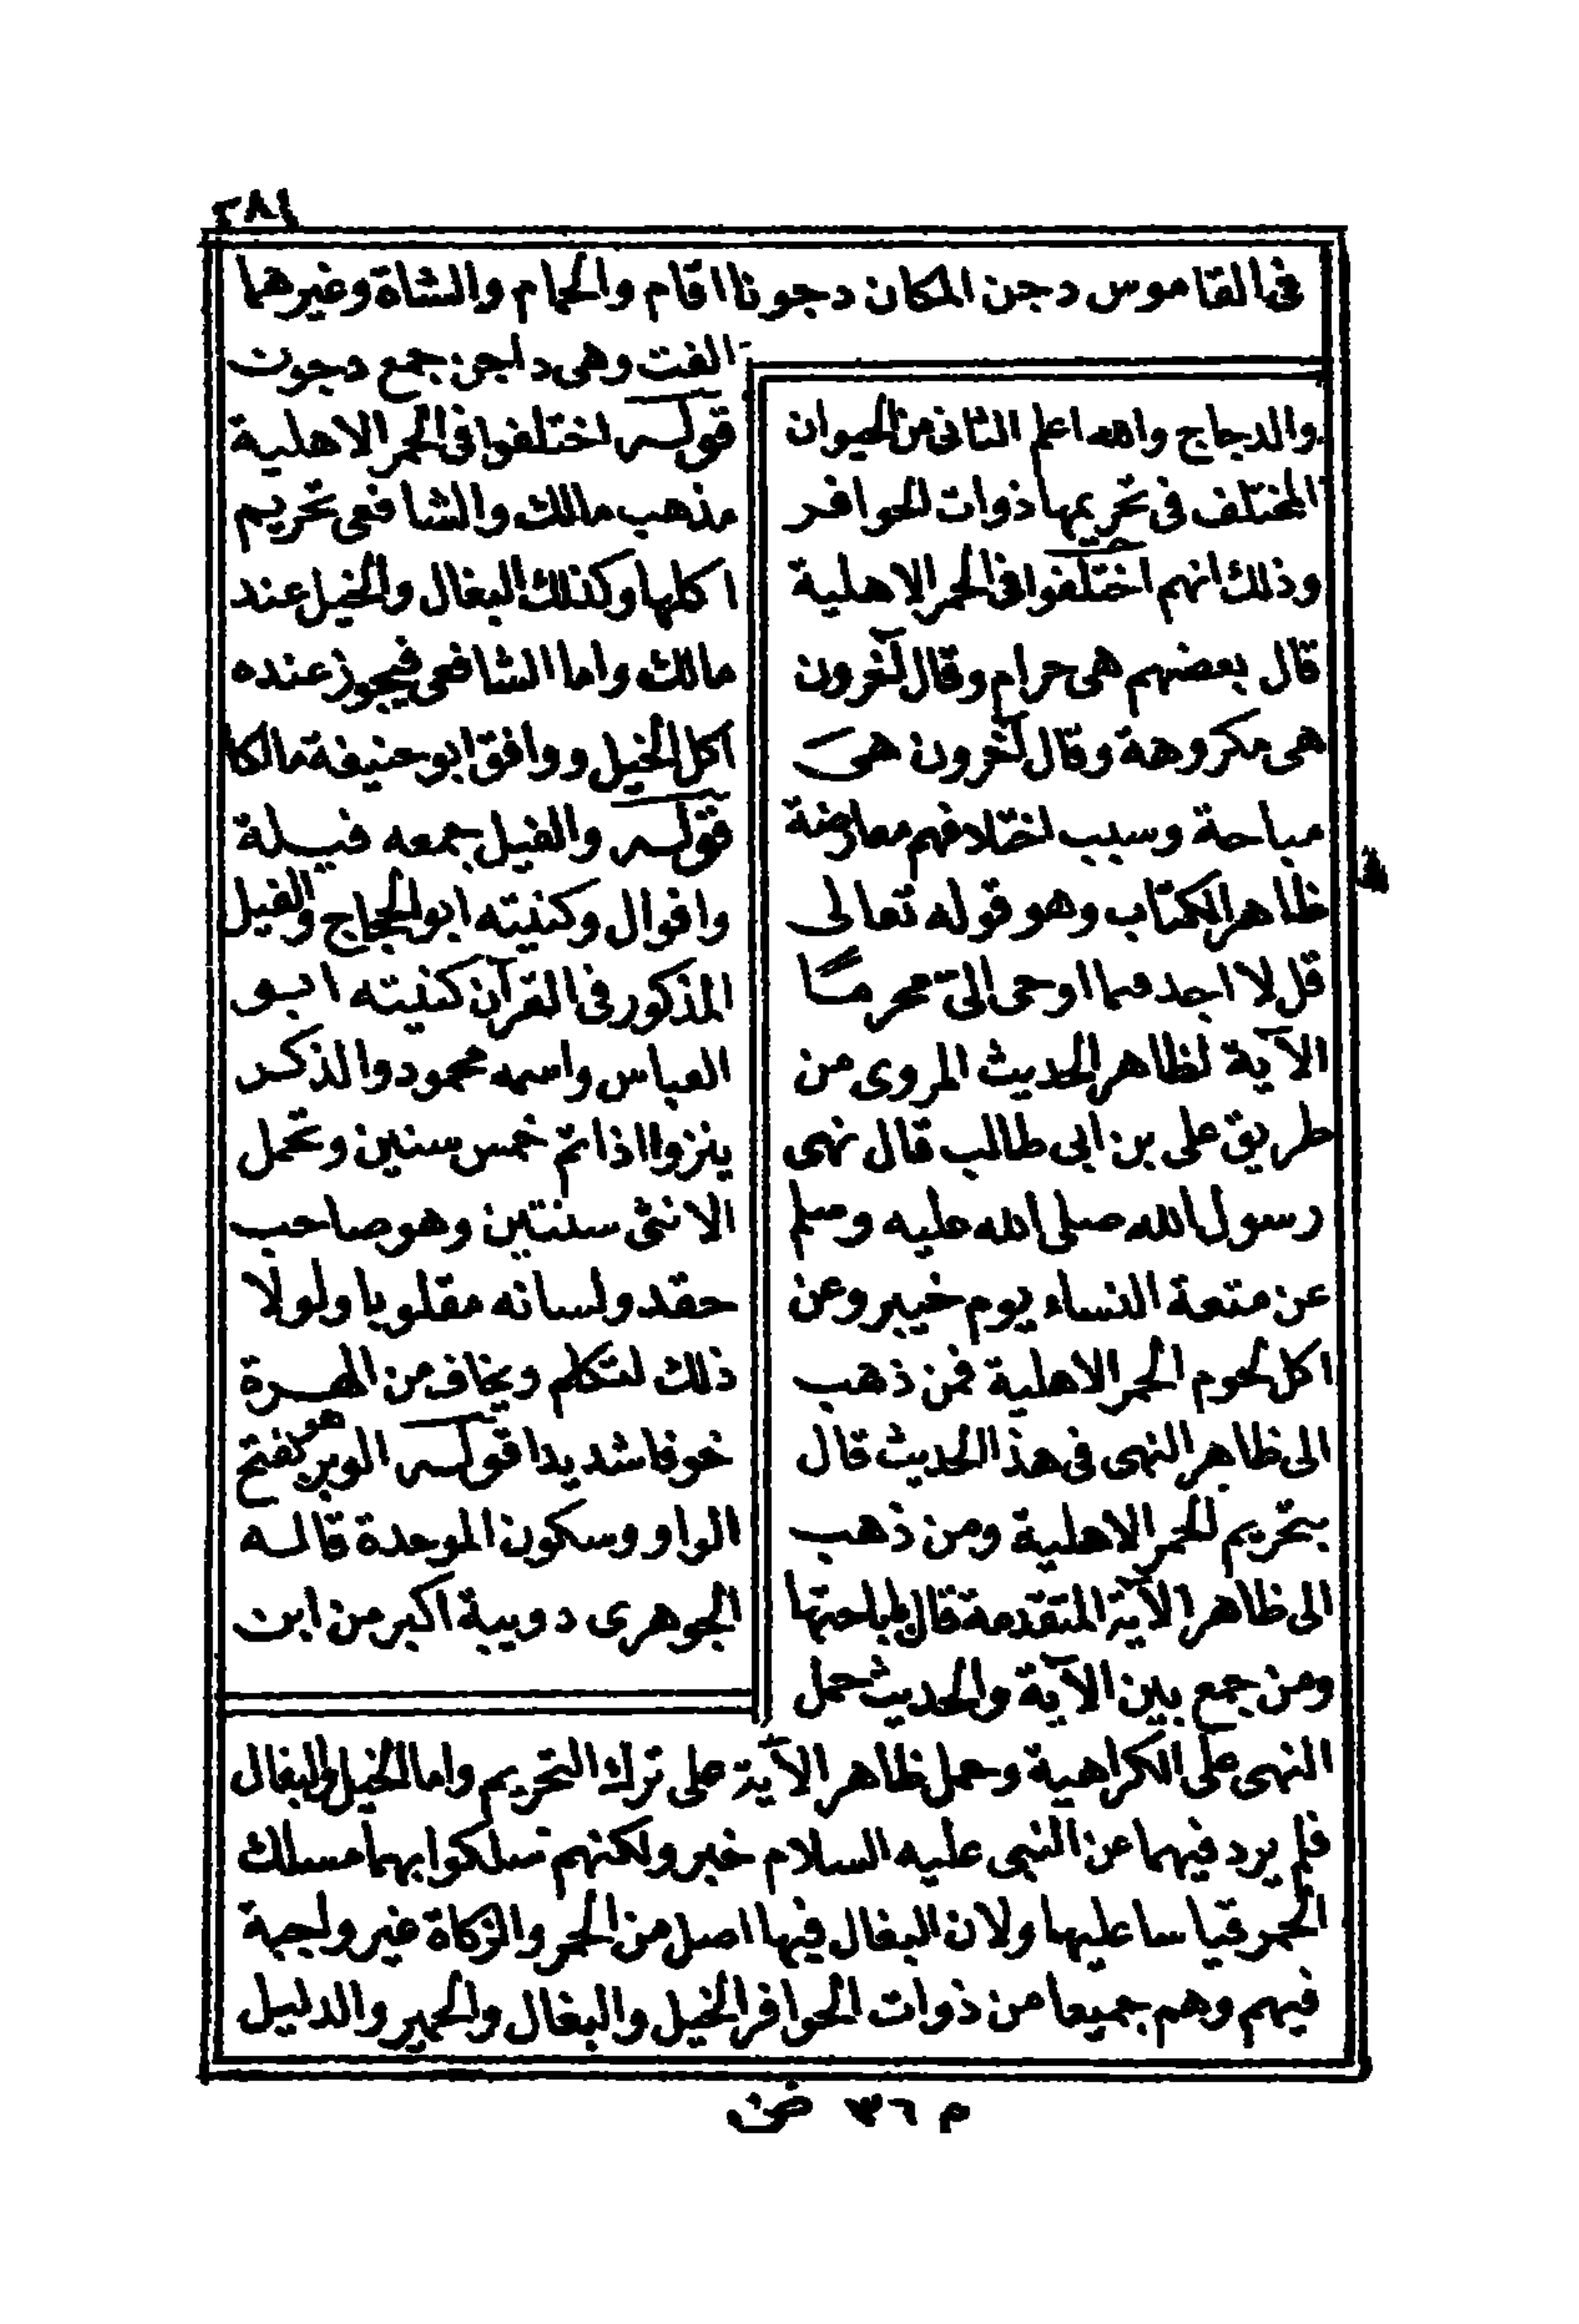 ٢٨١
فى القاموس دجن المكان دجونا اقام والحمام والشاة وغيرهما
الفت وهى داجن جمع دجون
قوله اختلفوا فى الحمر الاهلية
مذهب مالك والشافعى تحريم
اكلها وكذلك البغال والخيل عند
مالك واما الشافعى فيجوز عنده
اكل الخيل ووافق ابو حنيفة مالكا
قوله والفيل جمعه فيلة
وافوال وكنيته ابو الحجاج والفيل
المذكور فى القرآن كنيته ابو
العباس واسمه محمود والذكر
ينزوا اذا تم خمس سنين وتحمل
الانثى سنتين وهو صاحب
حقد ولسانه مقلوبا ولولا
ذلك لتكلم ويخاف من الهرة
خوفا شديدا قوله الوبر هو بفتح
الواو وسكون الموحدة قاله
الجوهرى دويبة اكبر من ابن
والدجاج والله اعلم الثانى من الحيوان
المختلف فى تحريمها ذوات الحوافر
وذلك انهم اختلفوا فى الحمر الاهلية
قال بعضهم هى حرام وقال آخرون
هى مكروهة وقال آخرون هى
مباحة وسبب اختلافهم معارضة
ظاهر الكتاب وهو قوله تعالى
قل لا اجد فيما اوحى الىّ محرما
الآية لظاهر الحديث المروى من
طريق على بن ابى طالب قال نهى
رسول الله صلى الله عليه وسلم
عن متعة النساء يوم خيبر وعن
اكل لحوم الحمر الاهلية فمن ذهب
الى ظاهر النهى فى هذا الحديث قال
بتحريم الحمر الاهلية ومن ذهب
الى ظاهر الآية المتقدمة قال باباحتها
ومن جمع بين الآية والحديث حمل
النهى على الكراهية وحمل ظاهر الآية على ترك التحريم واما الخيل والبغال
فلم يرد فيهما عن النبى عليه السلام خبر ولكنهم سلكوا بهما مسلك
الحمر قياسا عليها ولان البغال فيها اصل من الحمر والزكاة غير واجبة
فيهم وهم جميعا من ذوات الحوافر الخيل والبغال والحمير والدليل
م ٣٦ ض